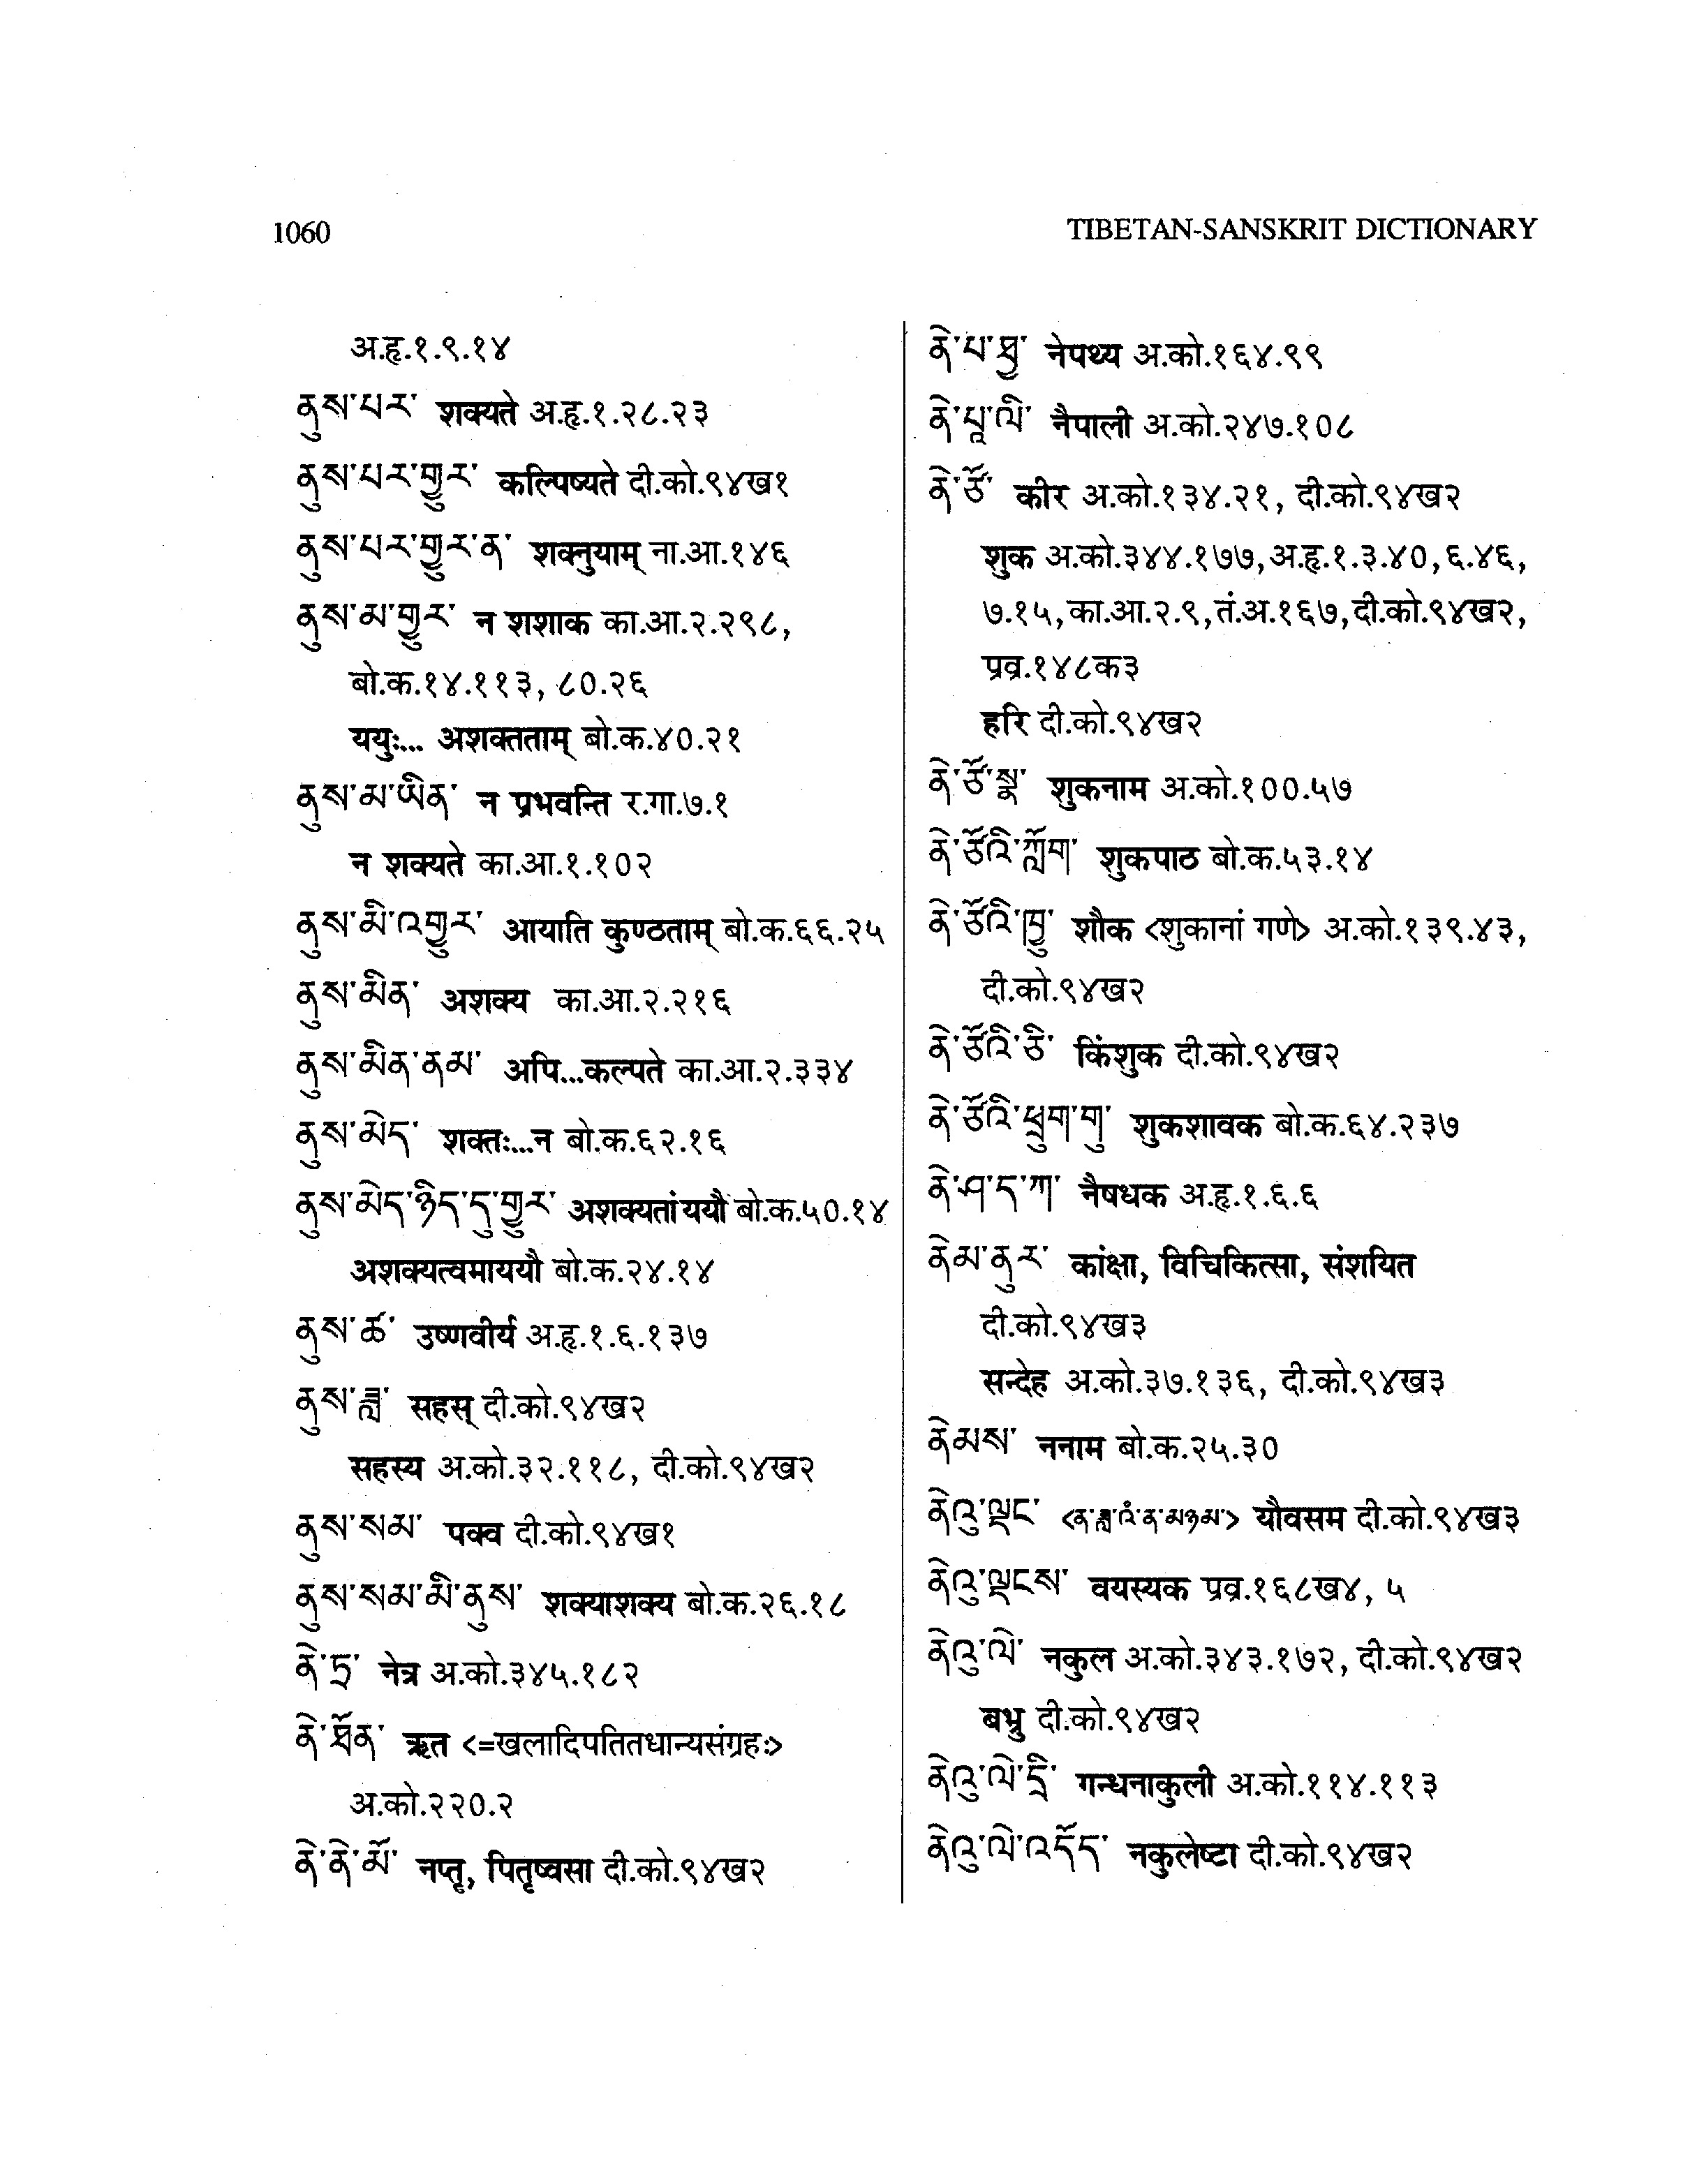 1060
TIBETAN-SANSKRIT DICTIONARY
अ.हृ.१.९.१४
ནུས་པར་ शक्यते अ.हृ.१.२८.२३
ནུས་པར་གྱུར་ कल्पिष्यते दी.को.९४ख१
ནུས་པར་གྱུར་ན་ शक्नुयाम् ना.आ.१४६
ནུས་མ་གྱུར་ न शशाक का.आ.२.२९८,
बो.क.१४.११३, ८०.२६
ययुः... अशक्तताम् बो.क.४०.२१
ནུས་མ་ཡིན་ न प्रभवन्ति र.गा.७.१
न शक्यते का.आ.१.१०२
ནུས་མི་འགྱུར་ आयाति कुण्ठताम् बो.क.६६.२५
ནུས་མིན་ अशक्य का.आ.२.२१६
ནུས་མིན་ནམ་ अपि...कल्पते का.आ.२.३३४
ནུས་མེད་ शक्तः...न बो.क.६२.१६
ནུས་མེད་ཉིད་དུ་གྱུར་ अशक्यतां ययौ बो.क.५०.१४
अशक्यत्वमाययौ बो.क.२४.१४
ནུས་ཚ་ उष्णवीर्य अ.हृ.१.६.१३७
ནུས་ཟླ་ सहस् दी.को.९४ख२
सहस्य अ.को.३२.११८, दी.को.९४ख२
ནུས་སམ་ पक्व दी.को.९४ख१
ནུས་སམ་མི་ནུས་ शक्याशक्य बो.क.२६.१८
ནེ་ཏྲ་ नेत्र अ.को.३४५.१८२
ནེ་ཐོན་ ऋत <=खलादिपतितधान्यसंग्रहः>
अ.को.२२०.२
ནེ་ནེ་མོ་ नप्तृ, पितृष्वसा दी.को.९४ख२
ནེ་པ་ཐྱ་ नेपथ्य अ.को.१६४.९९
ནེ་པཱ་ལི་ नैपाली अ.को.२४७.१०८
ནེ་ཙོ་ कीर अ.को.१३४.२१, दी.को.९४ख२
शुक अ.को.३४४.१७७, अ.हृ.१.३.४०, ६.४६,
७.१५, का.आ.२.९, तं.अ.१६७, दी.को.९४ख२,
प्रव्र.१४८क३
हरि दी.को.९४ख२
ནེ་ཙོ་སྣ་ शुकनाम अ.को.१००.५७
ནེ་ཙོའི་ཀློག་ शुकपाठ बो.क.५३.१४
ནེ་ཙོའི་ཁྱུ་ शौक <शुकानां गणे> अ.को.१३९.४३,
दी.को.९४ख२
ནེ་ཙོའི་ཅི་ किंशुक दी.को.९४ख२
ནེ་ཙོའི་ཕྲུག་གུ་ शुकशावक बो.क.६४.२३७
ནེ་ཤ་ད་ཀ་ नैषधक अ.हृ.१.६.६
ནེམ་ནུར་ कांक्षा, विचिकित्सा, संशयित
दी.को.९४ख३
सन्देह अ.को.३७.१३६, दी.को.९४ख३
ནེམས་ ननाम बो.क.२५.३०
ནེའུ་ལྡང་ यौवसम दी.को.९४ख३
ནེའུ་ལྡངས་ वयस्यक प्रव्र.१६८ख४, ५
ནེའུ་ལེ་ नकुल अ.को.३४३.१७२, दी.को.९४ख२
बभ्रु दी.को.९४ख२
ནེའུ་ལེ་དྲི་ गन्धनाकुली अ.को.११४.११३
ནེའུ་ལེ་འདོད་ नकुलेष्टा दी.को.९४ख२